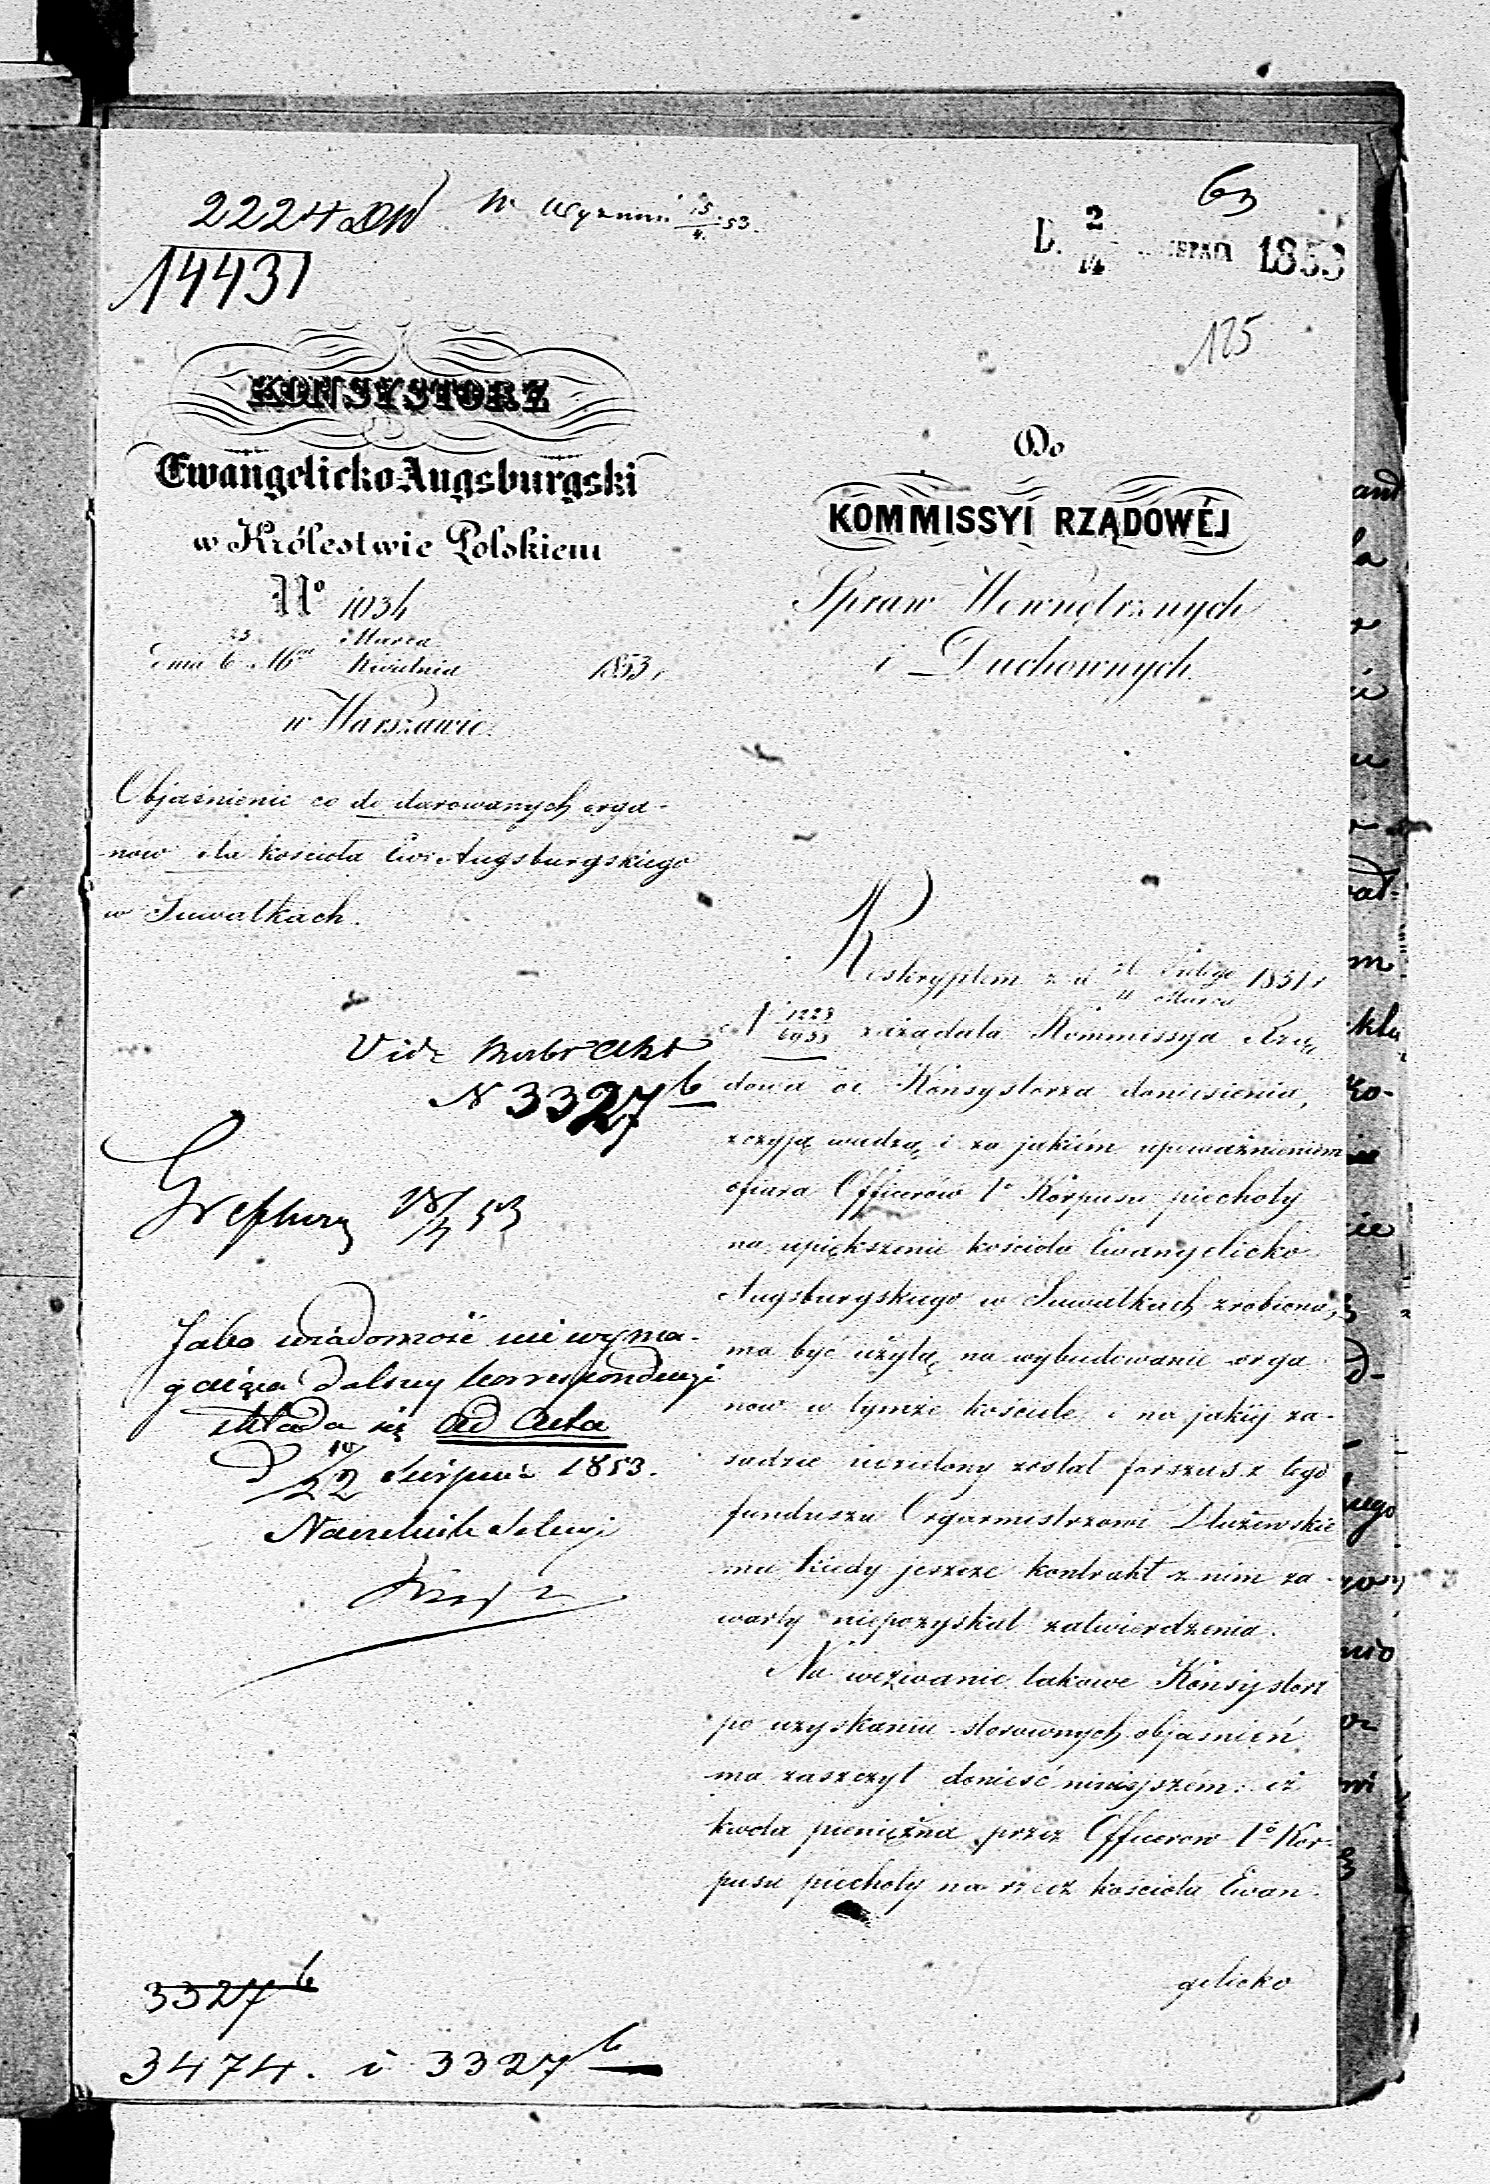 2224 DW W Wyznań 15/4 53.
14431
63
D. 2/14 1853
125
KONSYSTORZ
Ewangelicko-Augsburgski
w Królestwie Polskiem
No 1034
dnia 25 Marca / 6 Kwietnia 1853 r
w Warszawie.
Objaśnienie co do darowanych orga-
nów dla kościoła Ew: Augsburgskiego
w Suwałkach.
Vide
N 3327 b
18/4 53
Jako wiadomość nie wyma-
gająca dalszey korrespondencyi
składa się ad acta
D 10/22 Sierpnia 1853.
Naczelnik Sekcyi
3327 b
3474. i 3327 b
Do
KOMMISSYI RZĄDOWÉJ
Spraw Wewnętrznych
i Duchownych.
Reskryptem z d Lutego / 11 Marca 1851 r
N zażądała Kommissya Rzą
dowa od Konsystorza doniesienia,
z czyją wiedzą i za jakiém upoważnieniem
ofiara Officerów 1o Korpusu piechoty
na upiększenie kościoła Ewangelicko
Augsburgskiego w Suwałkach zrobiona,
ma być użytą na wybudowanie orga
now w tymże kościele i na jakiéj za-
sadzie udzielony został forszus z tego
funduszu Organmistrzowi Dłużewskie
mu kiedy jeszcze kontrakt z nim za-
warty niepozyskał zatwierdzenia.
Na wezwanie takowe Konsystorz
po uzyskaniu stosownych objasnień
ma zaszczyt donieść niniejszém: iż
kwota pieniężna przez Officerow 1o Kor-
pusu piechoty na rzecz kościoła Ewan-
gelicko